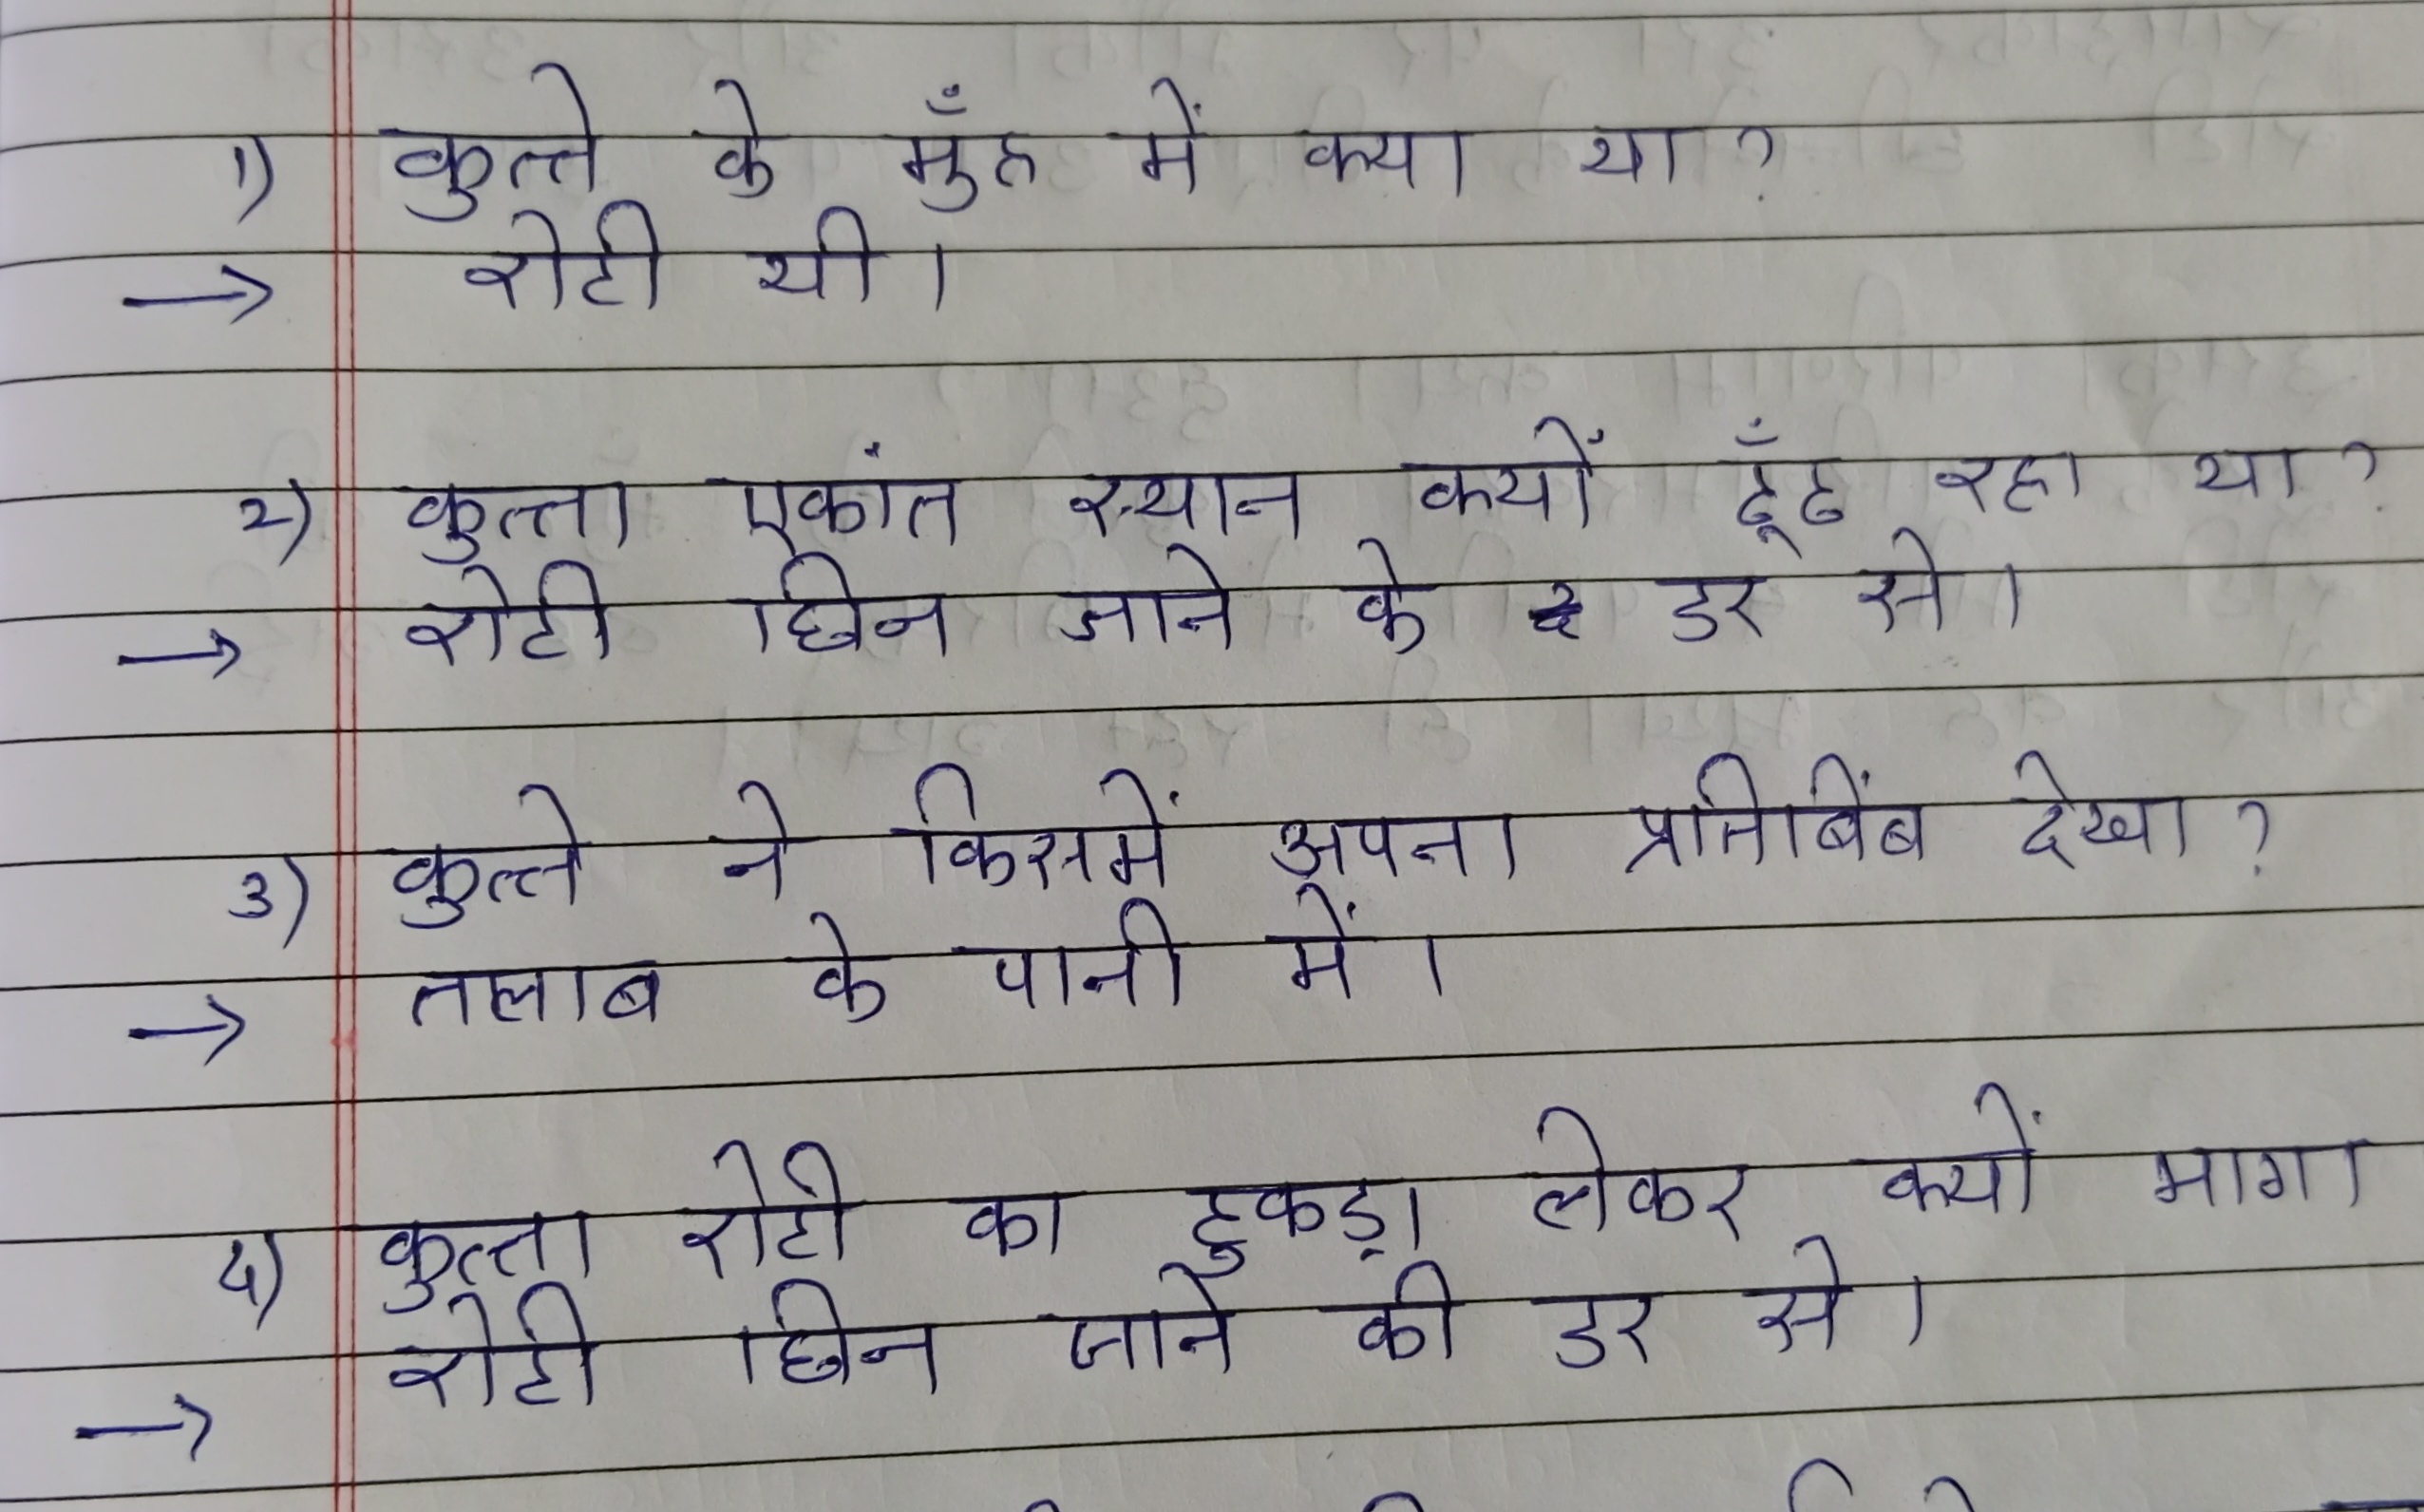 1) कुत्ते के मुँह में क्या था?
→ रोटी थी।
2) कुत्ता एकांत स्थान क्यों ढूँढ रहा था?
→ रोटी छिन जाने के डर से।
3) कुत्ते ने किसमें अपना प्रतिबिंब देखा?
→ तलाब के पानी में।
4) कुत्ता रोटी का टुकड़ा लेकर क्यों भागा
→ रोटी छिन जाने की डर से।